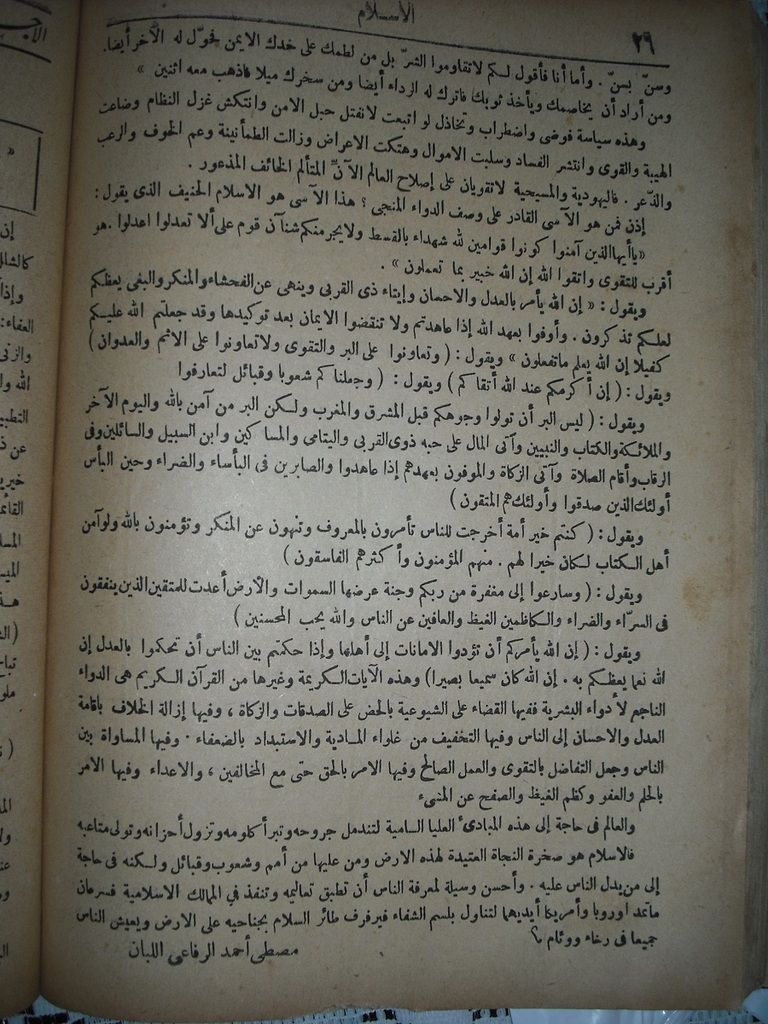 الاسلام
٢٦
وسنّ بسنّ . وأما أنا فأقول لكم لا تقاوموا الشرّ بل من لطمك على خدك الايمن فحوّل له الآخر أيضا.
ومن أراد أن يخاصمك ويأخذ ثوبك فاترك له الرداء أيضا ومن سخرك ميلا فاذهب معه اثنين »
وهذه سياسة فوضى واضطراب وتخاذل لو اتبعت لانفتل حبل الامن وانتكش غزل النظام وضاعت
الهيبة والقوى وانتشر الفساد وسلبت الاموال وهتكت الاعراض وزالت الطمأنينة وعم الخوف والرعب
والذّعر . فاليهودية والمسيحية لاتقويان على إصلاح العالم الآنّ المتألم الخائف المذعور .
إذن فمن هو الآسى القادر على وصف الدواء المنجى ؟ هذا الآسى هو الاسلام الحنيف الذى يقول :
«ياأيها الذين آمنوا كونوا قوامين لله شهداء بالقسط ولايجرمنكم شنآن قوم على ألا تعدلوا اعدلوا .هو
أقرب للتقوى واتقوا الله إن الله خبير بما تعملون » .
ويقول : « إن الله يأمر بالعدل والاحسان وإيتاء ذى القربى وينهى عن الفحشاء والمنكر والبغى يعظكم
لعلكم تذكرون . وأوفوا بعهد الله إذا عاهدتم ولا تنقضوا الايمان بعد توكيدها وقد جعلتم الله عليكم
كفيلا إن الله يعلم ماتفعلون » ويقول : ( وتعاونوا على البر والتقوى ولاتعاونوا على الاثم والعدوان )
ويقول : ( إن أكرمكم عند الله أتقاكم ) ويقول : ( وجعلناكم شعوبا وقبائل لتعارفوا
ويقول : ( ليس البر أن تولوا وجوهكم قبل المشرق والمغرب ولكن البر من آمن بالله واليوم الآخر
والملائكة والكتاب والنبيين وآتى المال على حبه ذوى القربى واليتامى والمساكين وابن السبيل والسائلين وفى
الرقاب وأقام الصلاة وآتى الزكاة والموفون بعهدهم إذا عاهدوا والصابرين فى البأساء والضراء وحين البأس
أولئك الذين صدقوا وأولئك هم المتقون )
ويقول : ( كنتم خير أمة أخرجت للناس تأمرون بالمعروف وتنهون عن المنكر وتؤمنون بالله ولو آمن
أهل الكتاب لكان خيرا لهم . منهم المؤمنون وأكثرهم الفاسقون )
ويقول : ( وسارعوا إلى مغفرة من ربكم وجنة عرضها السموات والأرض أعدت للمتقين الذين ينفقون
فى السرّاء والضراء والكاظمين الغيظ والعافين عن الناس والله يحب المحسنين )
ويقول : ( إن الله يأمركم أن تؤدوا الامانات إلى أهلها وإذا حكمتم بين الناس أن تحكموا بالعدل إن
الله نعما يعظكم به . إن الله كان سميعا بصيرا) وهذه الآيات الكريمة وغيرها من القرآن الكريم هى الدواء
الناجع لأدواء البشرية ففيها القضاء على الشيوعية بالحض على الصدقات والزكاة ، وفيها إزالة الخلاف باقامة
العدل والاحسان إلى الناس وفيها التخفيف من غلواء المادية والاستبداد بالضعفاء . وفيها المساواة بين
الناس وجعل التفاضل بالتقوى والعمل الصالح وفيها الامر بالحق حتى مع المخالفين ، والاعداء وفيها الامر
بالحلم والعفو وكظم الغيظ والصفح عن المسىء
والعالم فى حاجة إلى هذه المبادىء العليا السامية لتندمل جروحه وتبرأ كلومه وتزول أحزانه وتولى متاعبه
فالاسلام هو صخرة النجاة العتيدة لهذه الارض ومن عليها من أمم وشعوب وقبائل ولكنه فى حاجة
إلى من يدل الناس عليه . وأحسن وسيلة لمعرفة الناس أن تطبق تعاليمه وتنفذ فى الممالك الاسلامية فسرعان
ماتمد اوروبا وأمريكا أيديهما لتناول بلسم الشفاء فيرفرف طائر السلام بجناحيه على الارض ويعيش الناس
جميعا فى رخاء ووئام
مصطفى أحمد الرفاعى اللبان